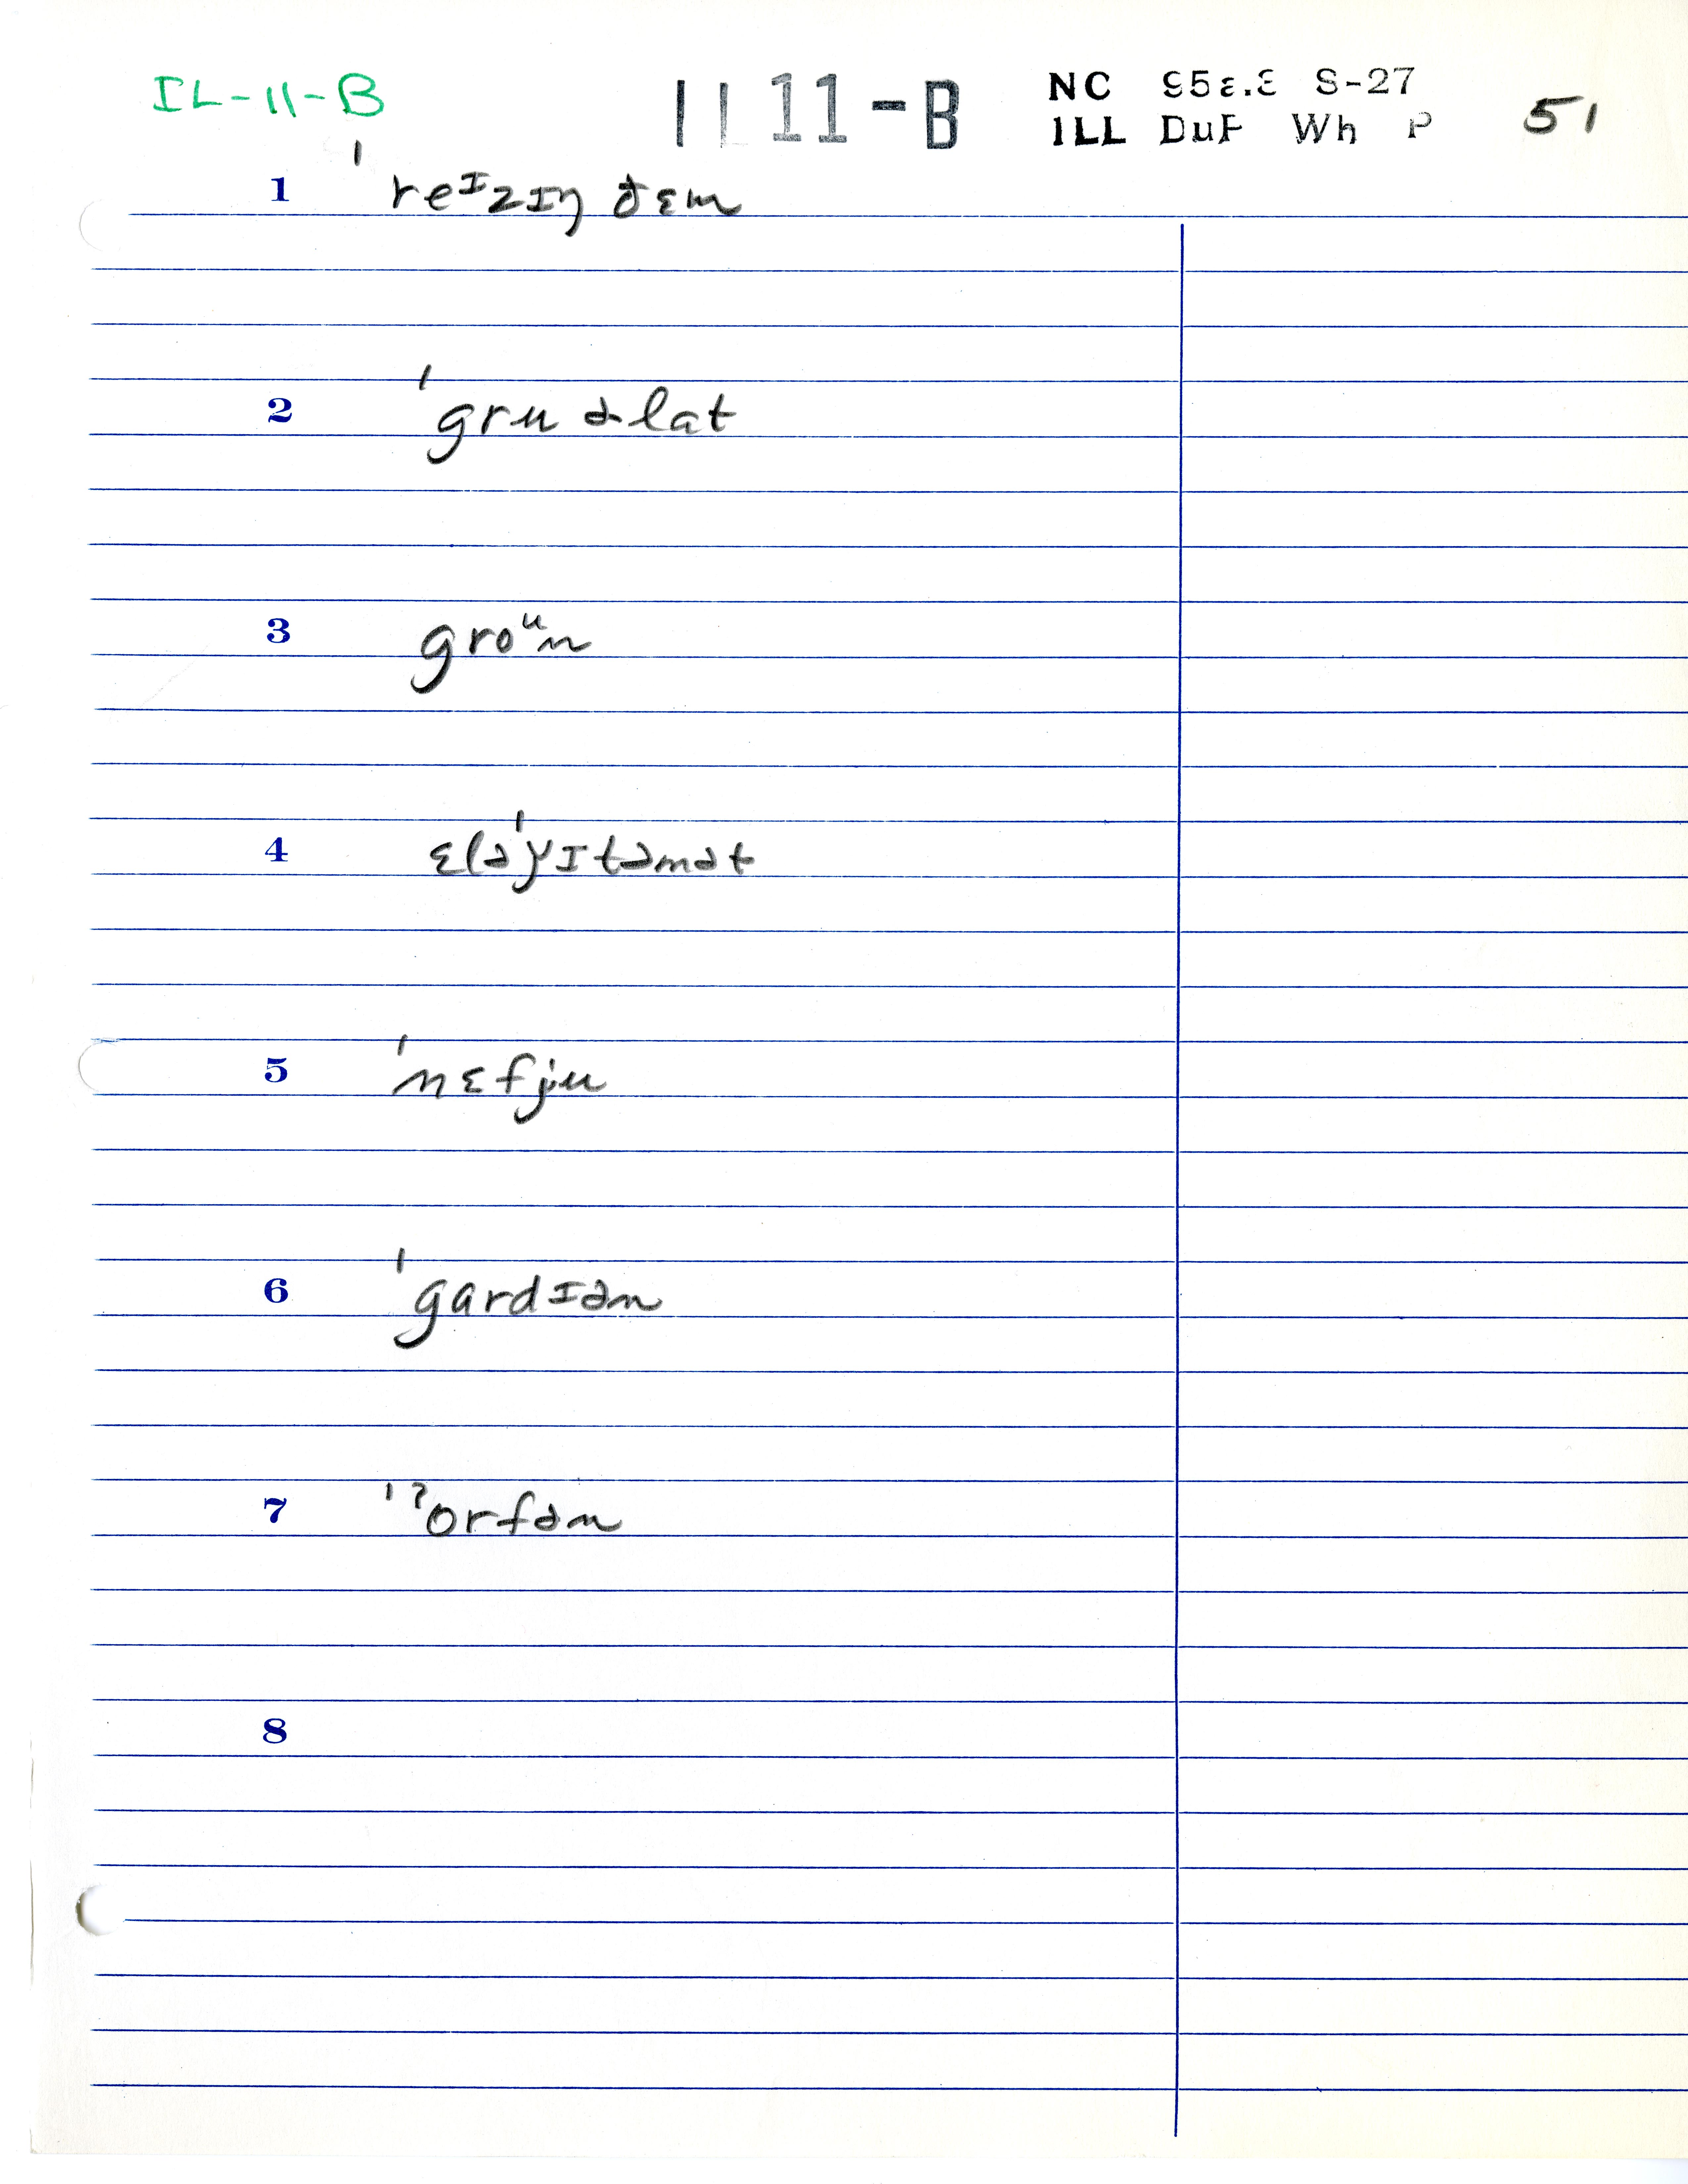 IL-11-B
IL 11-B
NC S-27
ILL DuP Wh P
51
1 ˈreᴵzɪŋ ðɛm
2 ˈgru ə lat
3 groᵘn
4 ɛləˈɣɪtəmət
5 ˈnɛfju
6 ˈgardɪən
7 ˈˀorfən
8